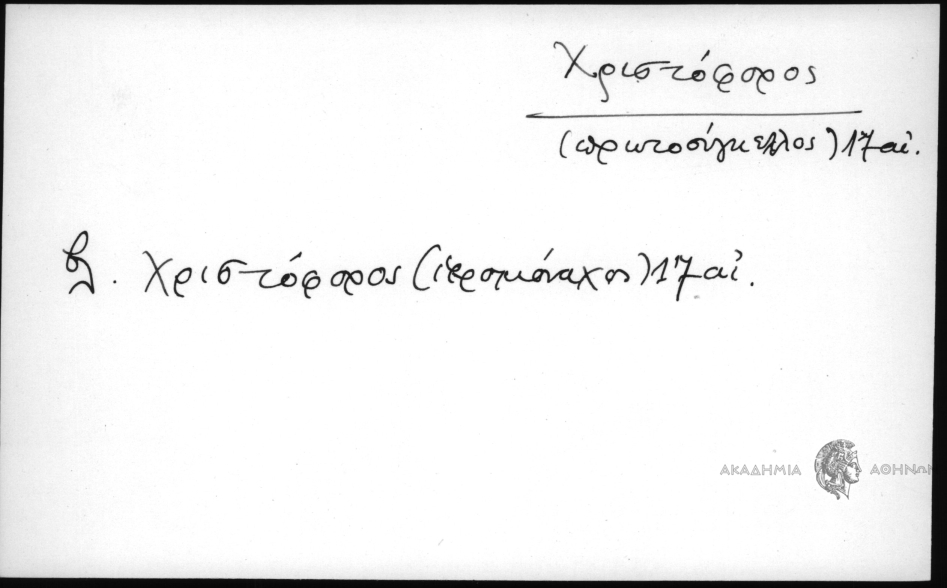 Χριστόφορος
(πρωτοσύγκελλος) 17 αἰ.
βλ. Χριστόφορος (ἱερομόναχος) 17 αἰ.
ΑΚΑΔΗΜΙΑ ΑΘΗΝΩΝ